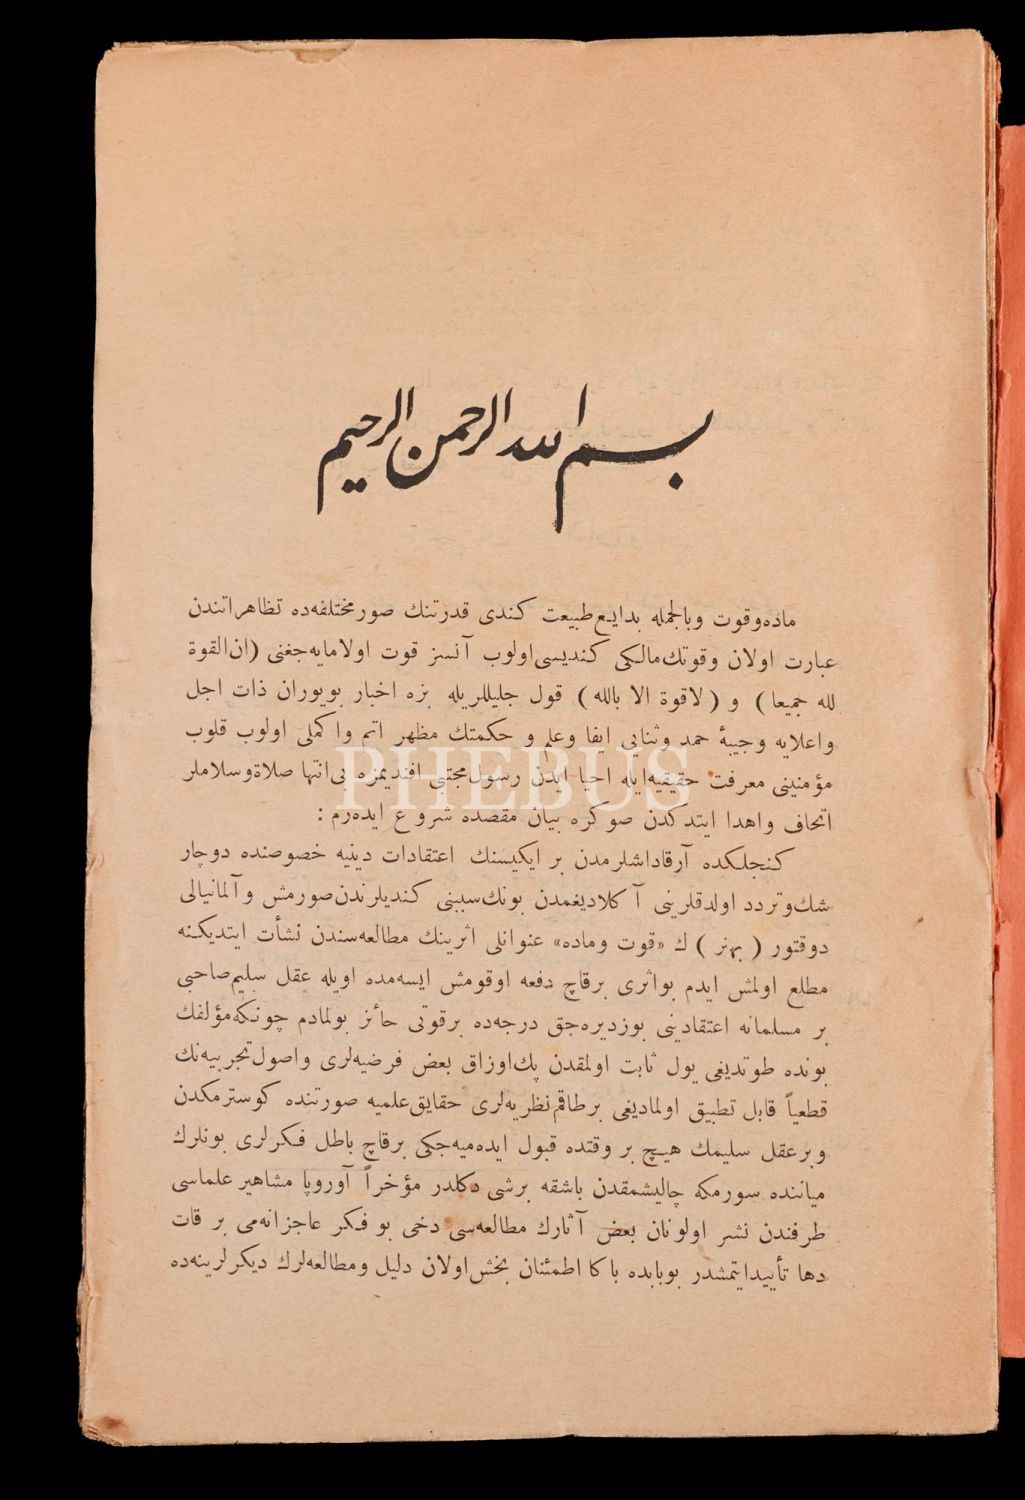 بسم الله الرحمن الرحيم
ماده‌وقوت وبالجمله بدايع‌طبيعت كندی قدرتنك صورمختلفه‌ده تظاهراتندن
عبارت اولان وقوتك‌مالكی كنديسی‌اولوب آنسز قوت اولامايه‌جغنی (ان‌القوة
لله جميعا) و (لاقوة الا بالله) قول جليللريله بزه اخبار بويوران ذات اجل
واعلايه وجيبهٔ حمد وثنايی ايفا وعلم و حكمتك مظهر اتم واكملی اولوب قلوب
مؤمنينی معرفت حقيقيه‌ايله احيا ايدن رسول‌مجتبی افنديمزه بی‌انتها صلاةوسلاملر
اتحاف واهدا ايتدكدن صوكره بيان مقصده شروع ايده‌رم :
كنجلكده آرقاداشلرمدن بر ايكيسنك اعتقادات دينيه خصوصنده دوچار
شك‌وتردد اولدقلرينی آكلاديغمدن بونك‌سببنی كنديلرندن‌صورمش وآلمانيالی
دوقتور (بهنر) ك «قوت وماده» عنوانلی اثرينك مطالعه‌سندن نشأت ايتديكنه
مطلع اولمش ايدم بواثری برقاچ دفعه اوقومش ايسه‌مده اويله عقل سليم‌صاحبی
بر مسلمانه اعتقادينی بوزديره‌جق درجه‌ده برقوتی حائز بولمادم چونكه‌مؤلفك
بونده طوتديغی يول ثابت اولمقدن پك‌اوزاق بعض فرضيه‌لری واصول‌تجربيه‌نك
قطعياً قابل تطبيق اولماديغی برطاقم‌نظريه‌لری حقايق‌علميه صورتنده كوسترمكدن
وبرعقل سليمك هيچ بر وقتده قبول ايده‌ميه‌جكی برقاچ باطل فكرلری بونلرك
مياننده سورمكه چاليشمقدن باشقه برشی دكلدر مؤخراً آوروپا مشاهير علماسی
طرفندن نشر اولونان بعض آثارك مطالعه‌سی دخی بو فكر عاجزانه‌می بر قات
دها تأييدايتمشدر بوبابده باكا اطمئنان بخش‌اولان دليل ومطالعه‌لرك ديكرلرينه‌ده
PHEBUS